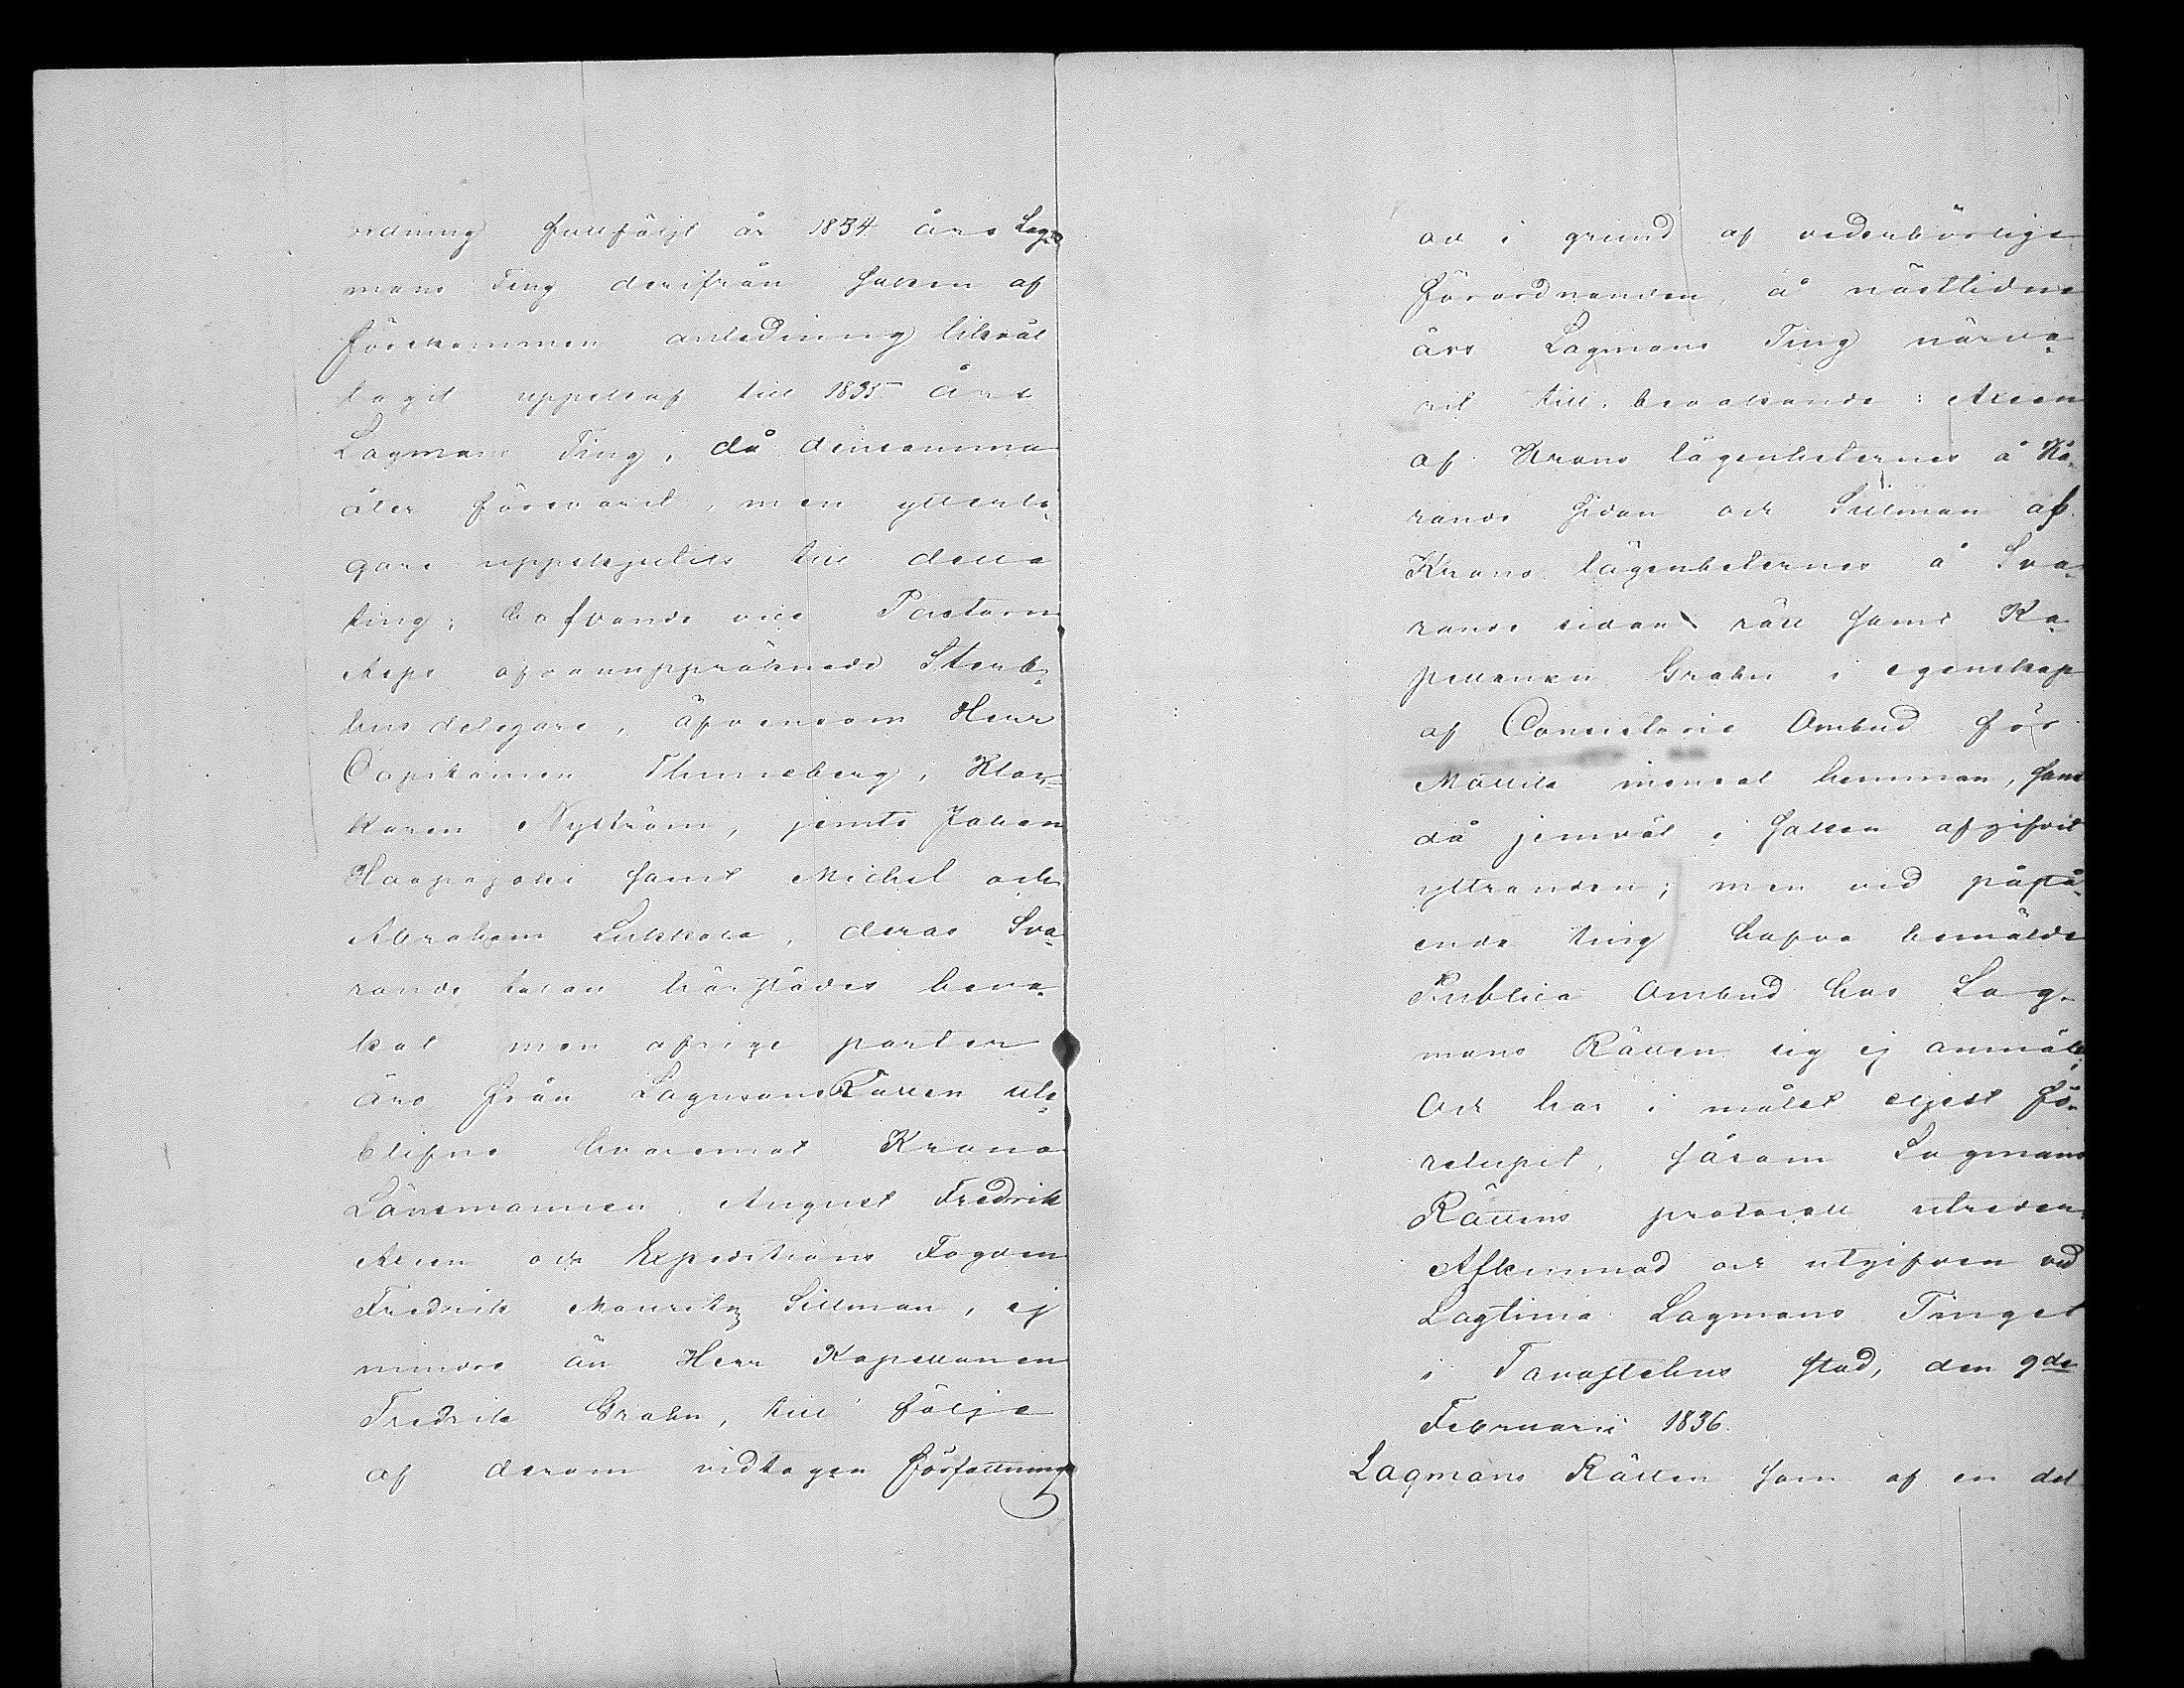 ordning fullföljt år 1834 års Lag-
mans Ting derifrån saken af
förekommen anledning likväl
tagit uppskof till 1835 års
Lagmans Ting, då densamma
åter förevarit, men ytterli-
gare uppskjutits till detta
ting; hafvande vice Pastorn
Aeps ofvanuppräknade Sterb-
husdelegare, äfvensom Herr
Capitainen Thuneberg, Kloc-
karen Nyström, jemte Johan
Haapajoki samt Michel och
Abraham Lukkala, deras Sva-
rande talan härstädes beva-
kat men öfrige parter
äro från LagmansRätten ute-
blifne hvaremot Krono
Länsmannen August Fredrik
Aeen och Expeditions Fogden
Fredrik Mauritz Sillman, ej
mindre än Herr Kapellanen
Fredrik Grahn, till följe
af derom vidtagen författning
och i grund af vederbörlige
förordnanden, å nästlidne
års Lagmans Ting närva-
rit till bevakande: Aeen
af Krono lägenheternes å Kä-
rande sidan och Sillman af
Krono lägenheternes å Sva-
rande sidan rätt samt Ka-
pellanen Grahn i egenskap
af Consistorie Ombud för
Mattila mensal hemman, samt
då jemväl i saken afgifvit
yttranden; men vid påstå-
ende ting hafva bemälde
Publica Ombud hos Lag-
mans Rätten sig ej anmält;
Och har i målet eljest fö-
relupit, såsom Lagmans
Rättens protocoll utreder.
Afkunnad och utgifven vid
Lagtima Lagmans Tinget
i Tavastehus stad, den 9de
Februarii 1836.
Lagmans Rätten som af en del